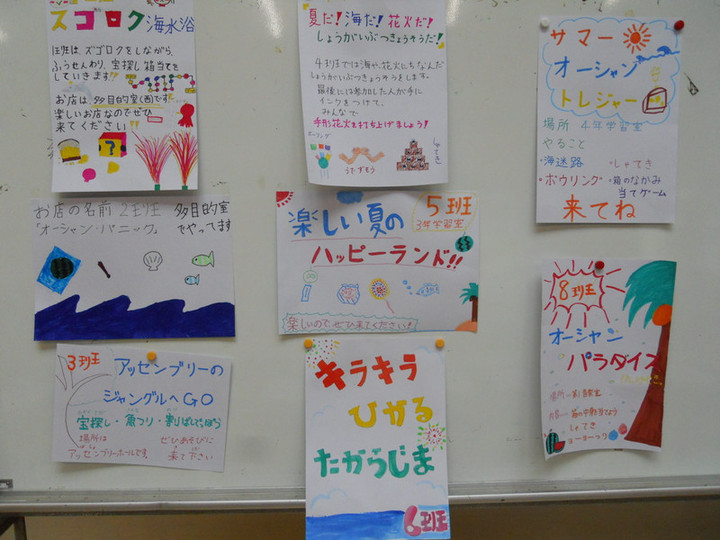 ズゴロク 海水浴
1班は、ズゴロクをしながら、
ふうせんわり、宝探し箱当てを
していきます!!
お店は、多目的室(西)です
楽しいお店なのでぜひ
来てください!!
夏だ!海だ!花火だ!
しょうがいぶつきょうそうだ!
4班では海や、花火にちなんだ
しょうがいぶつきょうそうをします。
最後には参加した人が手に
インクをつけて、
みんなで
手形花火を打ち上げましょう!
ボーリング
うでずもう
しゃてき
サマー
オーシャン
トレジャー
場所 4年学習室
やること
・海迷路
・しゃてき
・ボウリング
・箱のなかみ
当てゲーム
来てね
お店の名前 2班
多目的室
「オーシャン・パニック」
でやってます
楽しい夏の
5班
3年学習室
ハッピーランド!!
楽しいのでぜひ来てください!
8班
オーシャン
パラダイス
しゃてき
3班
アッセンブリーの
ジャングルへGO
宝探し・魚つり・割りばしでっぽう
場所は
アッセンブリーホールです
ぜひあそびに
来て下さい
キラキラ
ひかる
たからじま
6班